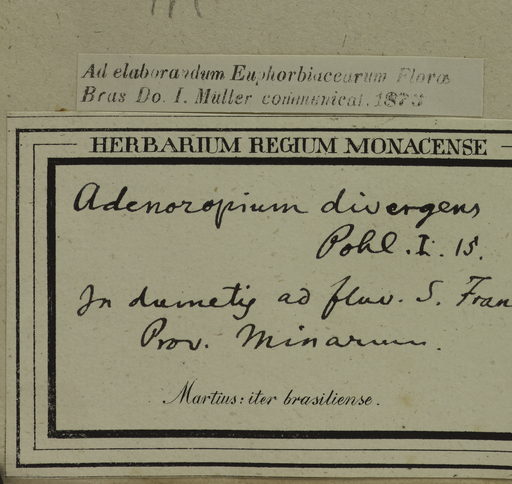 Ad elaborandum Euphorbiacearum Floræ
Bras Do. I. Müller communicat. 1873
HERBARIUM REGIUM MONACENSE
Adenoropium divergens
Pohl. I. 15.
In dumetis ad fluv. S. Fran
Prov. Minarum.
Martius: iter brasiliense.